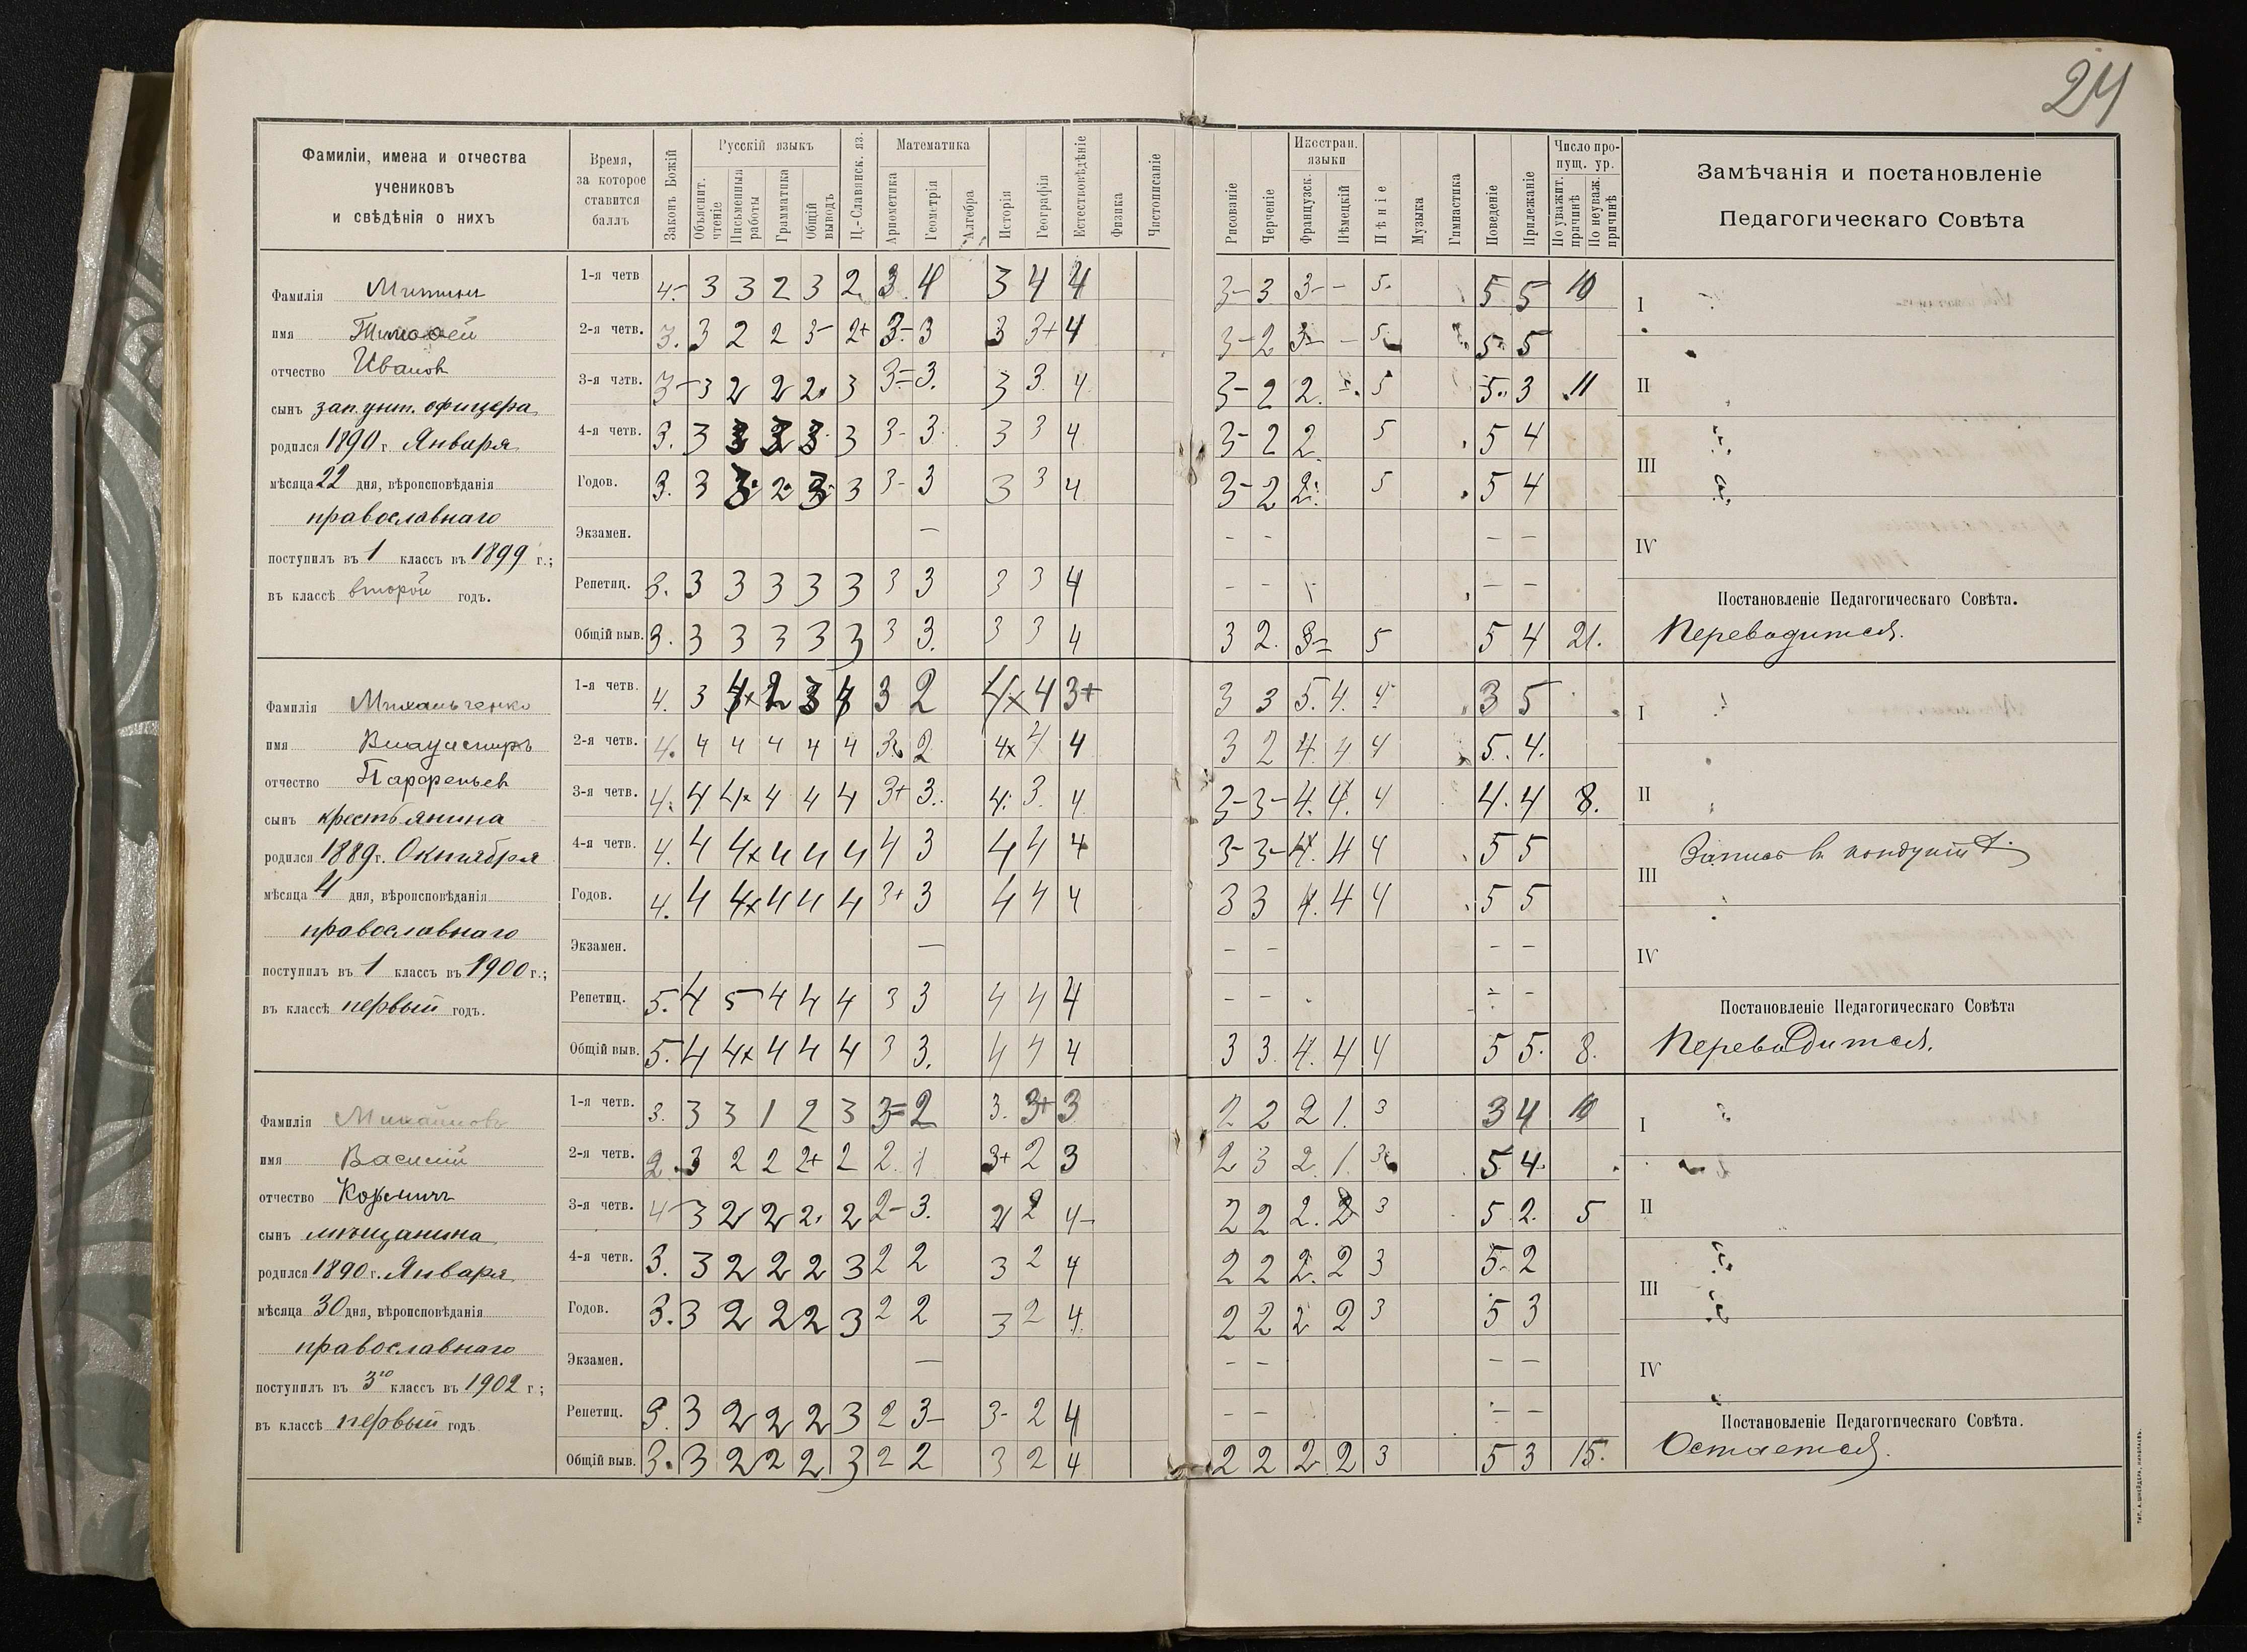 24
Фамиліи, имена и отчества
учениковъ
и свѣдѣнія о нихъ
Время,
за которое
ставится
баллъ
Законъ Божій
Русскій языкъ
Объяснит. чтеніе
Письменныя работы
Грамматика
Общій выводъ
Ц.-Славянск. яз.
Математика
Ариөметика
Геометрія
Алгебра
Исторія
Географія
Естествовѣдѣніе
Физика
Чистописаніе
Рисованіе
Черченіе
Иностран. языки
Французск.
Нѣмецкій
Пѣніе
Музыка
Гимнастика
Поведеніе
Прилежаніе
Число пропущ. ур.
По уважит. причинѣ
По неуваж. причинѣ
Замѣчанія и постановленіе
Педагогическаго Совѣта
Фамилія Митинъ
имя Тимоѳей
отчество Иванов
сынъ зап. унт. офицера
родился 1890 г. Января
мѣсяца 22 дня, вѣроисповѣданія
православнаго
поступилъ въ 1 классъ въ 1899 г.;
въ классѣ второй годъ.
1-я четв 4- 3 3 2 3 2 3 4 3 4 4 3- 3 3- - 5 5 5 10
2-я четв. 3. 3 2 2 3- 2+ 3- 3 3 3+ 4 3- 2 3- - 5 5 5
3-я четв. 3- 3 2 2 2 3 3= 3. 3 3 4 3- 2 2 5 5 3 11
4-я четв. 3. 3 3 3 3 3- 3 3 3 4 3- 2 2 5 5 4
Годов. 3. 3 3 2 3 3 3- 3 3 3 4 3- 2 2 5 5 4
Экзамен. — - - - -
Репетиц. 3. 3 3 3 3 3 3 3 3 3 4 - - - -
Общій выв. 3. 3 3 3 3 3 3 3. 3 3 4 3 2. 3= 5 5 4 21.
I
II
III
IV
Постановленіе Педагогическаго Совѣта.
Переводится.
Фамилія Михальченко
имя Владимиръ
отчество Парфеньев
сынъ крестьянина
родился 1889 г. Октября
мѣсяца 4 дня, вѣроисповѣданія
православнаго
поступилъ въ 1 классъ въ 1900 г.;
въ классѣ первый годъ.
1-я четв. 4. 3 4x 2 3 4 3 2 4x 4 3+ 3 3 5. 4. 4 3 5
2-я четв. 4. 4 4 4 4 4 3 2 4x 4 4 3 2 4. 4 4 5. 4.
3-я четв. 4. 4 4x 4 4 4 3+ 3. 4. 3. 4 3- 3- 4. 4. 4 4. 4 8.
4-я четв. 4. 4 4x 4 4 4 4 3 4 4 4 3- 3- 4. 4 4 5 5
Годов. 4. 4 4x 4 4 4 3+ 3 4 4 4 3 3 4. 4 4 5 5
Экзамен. — - - - -
Репетиц. 5. 4 5 4 4 4 3 3 4 4 4 - - - -
Общій выв. 5. 4 4x 4 4 4 3 3. 4 4 4 3 3. 4. 4 4 5 5. 8.
I
II
Запись в кондуит
III
IV
Постановленіе Педагогическаго Совѣта
Переводится.
Фамилія Михайловъ
имя Василій
отчество
сынъ мѣщанина
родился 1890 г. Января
мѣсяца 30 дня, вѣроисповѣданія
православнаго
поступилъ въ 3го классъ въ 1902 г;
въ классѣ первый годъ
1-я четв. 3. 3 3 1 2 3 3= 2 3. 3+ 3 2 2 2 1. 3 3 4 10
2-я четв. 2. 3 2 2 2+ 2 2. 1 3+ 2 3 2 3 2. 1. 3 5 4.
3-я четв. 4- 3 2 2 2. 2 2- 3. 2 2 4- 2 2 2. 2 3 5. 2. 5
4-я четв. 3. 3 2 2 2 3 2 2 3 2 4 2 2 2. 2 3 5. 2
Годов. 3. 3 2 2 2 3 2 2 3 2 4. 2 2 2 2 3 5 3
Экзамен. — - - — —
Репетиц. 3. 3 2 2 2 3 2 3- 3- 2 4 - - - -
Общій выв. 3. 3 2 2 2 3 2 2 3 2 4 2 2 2 2 3 5 3 15.
I
II
III
IV
Постановленіе Педагогическаго Совѣта.
Остается.
Тип. А. Шнейдера, Николаевъ.